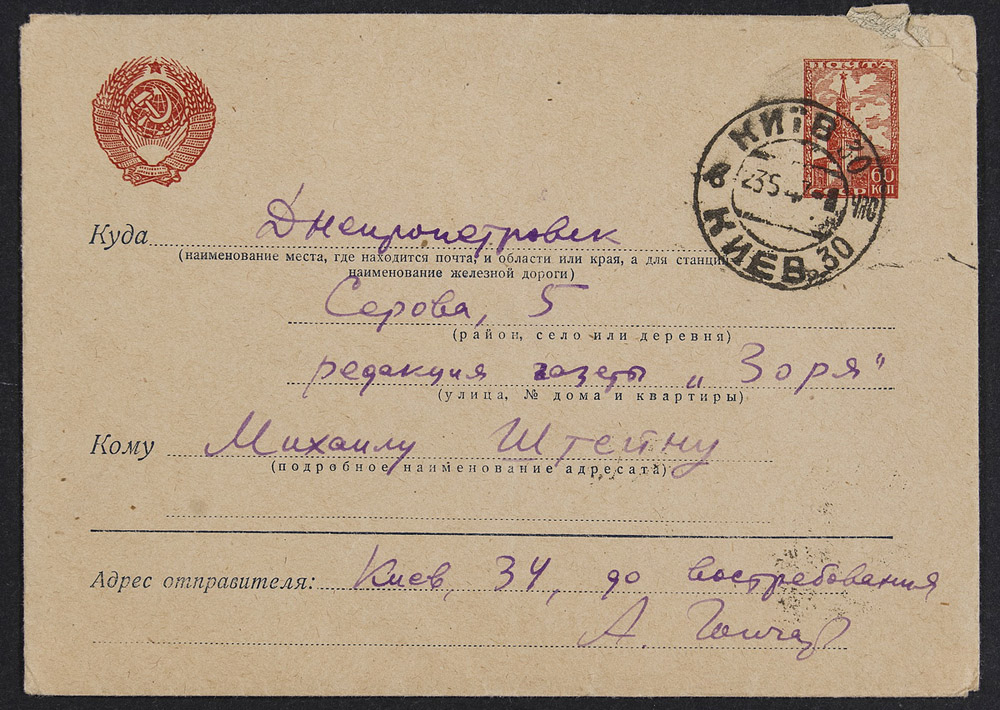 ПОЧТА
60
КОП
КИЇВ
23 5 47
КИЕВ
30
Куда Днепропетровск
(наименование места, где находится почта, и области или края, а для станции
наименование железной дороги)
Серова, 5
(район, село или деревня)
редакция газеты „Зоря"
(улица, № дома и квартиры)
Кому Михаилу Штейну
(подробное наименование адресата)
Адрес отправителя: Киев, 34, до востребования
А. Гончар